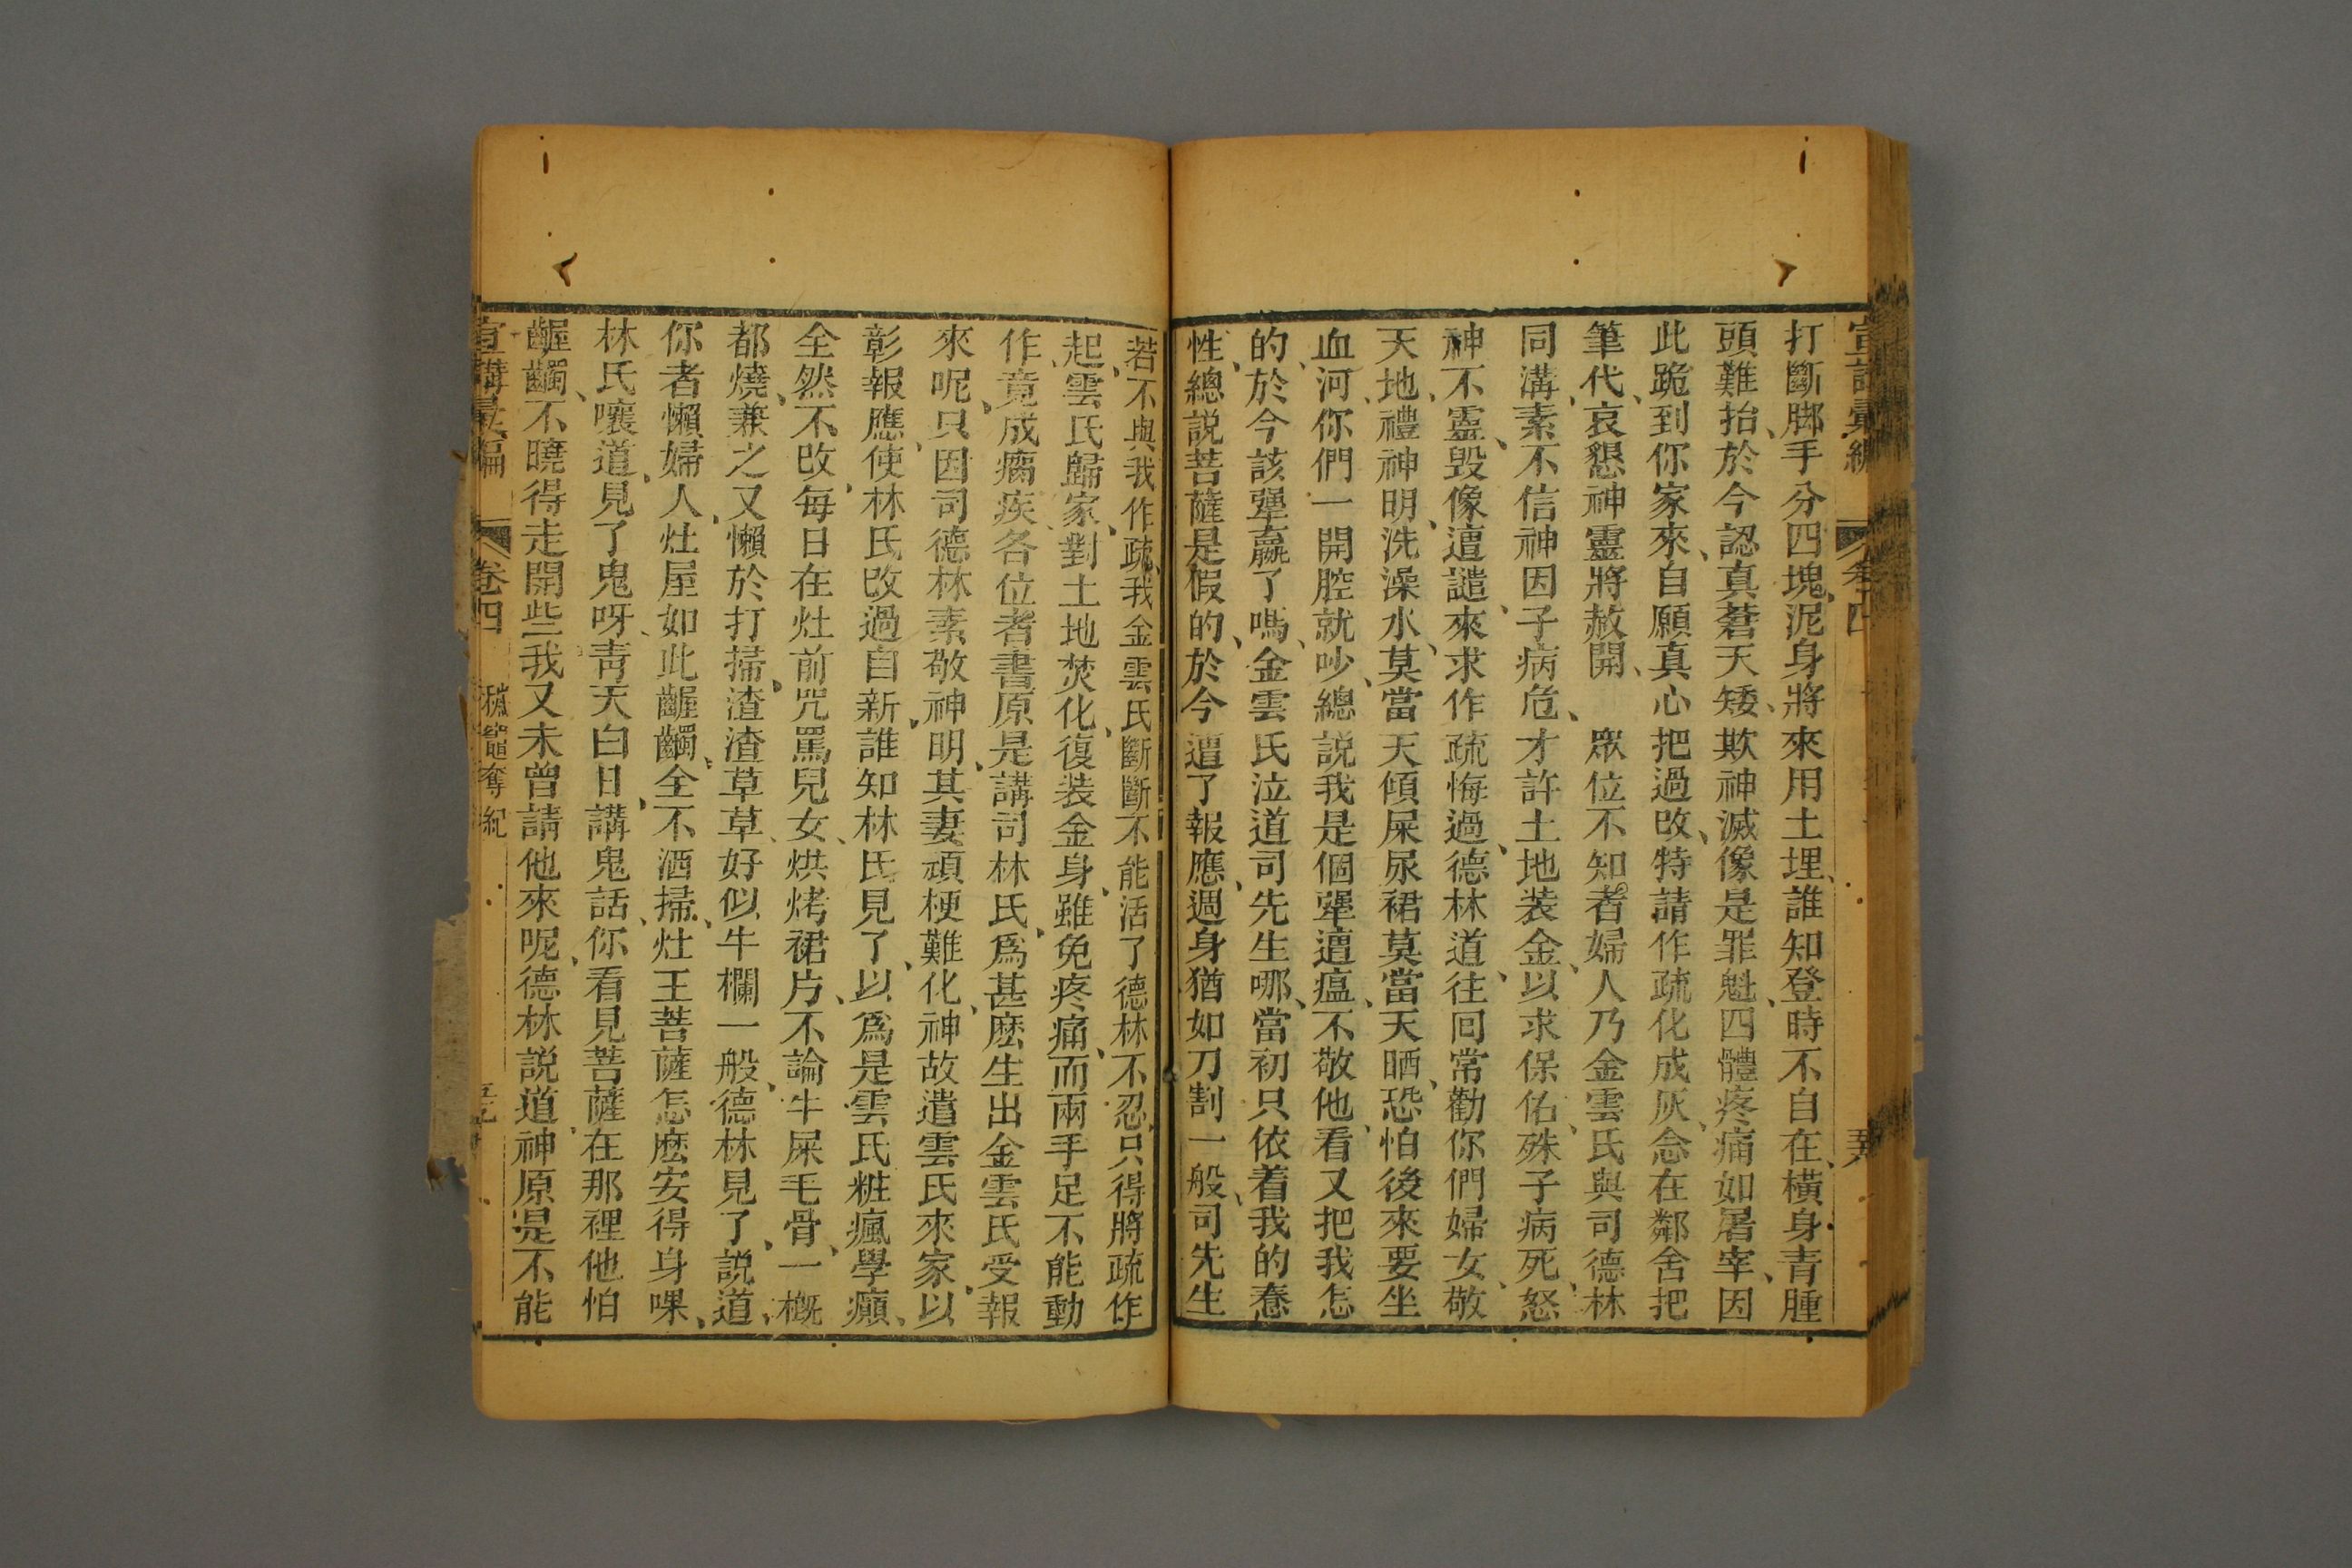 宣講彙編 卷四
打斷脚手分四塊、泥身將來用土埋、誰知登時不自在、橫身青腫
頭難抬、於今認真蒼天矮、欺神滅像是罪魁、四體疼痛如暑宰、因
此跪到你家來、自願真心把過改、特請作疏化成灰、念在鄰舍把
筆代、哀懇神靈將赦開、 眾位不知者婦人乃金雲氏與司德林
同溝、素不信神因子病危、才許土地装金、以求保佑、殊子病死、怒
神不靈、毀像遭譴、來求作疏悔過、德林道、往囘常勸你們婦女、敬
天地、禮神明、洗澡水、莫當天傾屎尿裙莫當天晒、恐怕後來要坐
血河、你們一開腔就吵、總說我是個犟遭瘟、不敬他、看又把我怎
的、於今該犟贏了嗎、金雲氏泣道司先生哪、當初只依着我的惷
性、總説菩薩是假的、於今遭了報應、週身猶如刀割一般、司先生
若不與我作疏、我金雲氏斷斷不能活了德林不忍、只得將疏作
起、雲氏歸家、對土地焚化、復装金身、雖免疼痛、而兩手足不能動
作、竟成瘸疾、各位者書原是講司林氏、爲甚麽生出金雲氏受報
來呢、只因司德林素敬神明、其妻頑梗難化、神故遣雲氏來家、以
彰報應、使林氏改過自新、誰知林氏見了、以爲是雲氏粧瘋學癲、
全然不改、每日在灶前咒駡兒女、烘烤裙片、不論牛屎毛骨、一概
都燒、兼之又懶於打掃、渣渣草草、好似牛欄一般、德林見了、説道、
你者懶婦人、灶屋如此齷齪、全不洒掃、灶王菩薩怎麽安得身㗖、
林氏嚷道、見了鬼呀、靑天白日、講鬼話、你看見菩薩在那裡他怕
齷齪、不曉得走開些、我又未曾請他來呢、德林説道、神原是不能
宣講彙編 卷四 穢竈奪紀